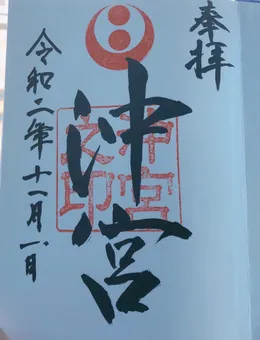 奉拝
沖宮
沖宮
之印
令和二年十一月八日